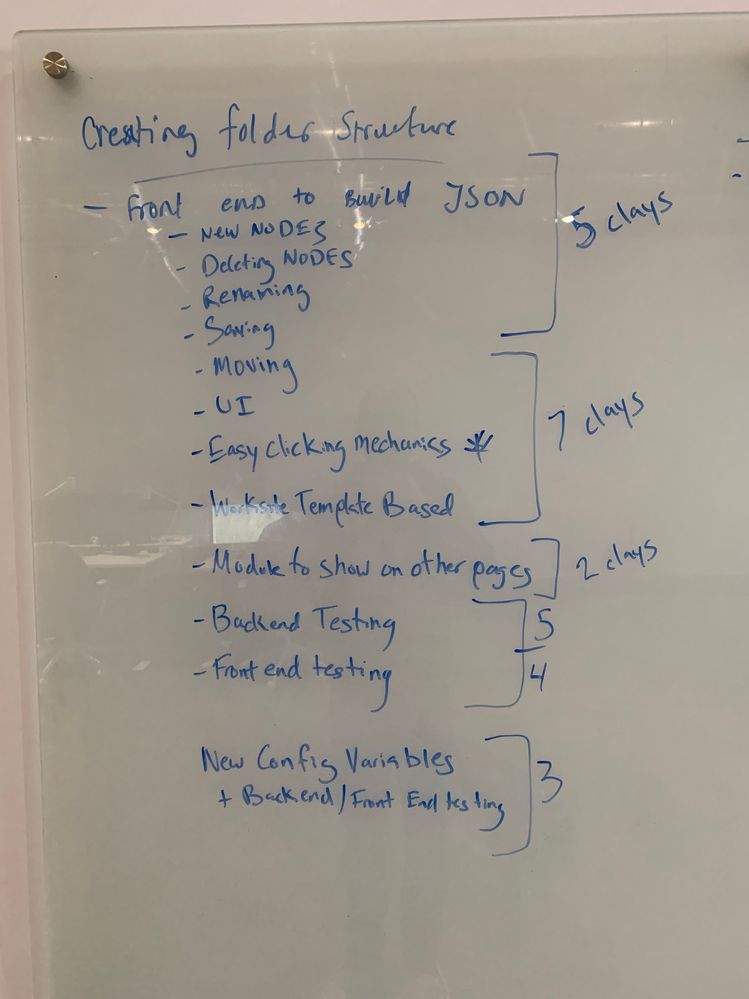 Creating folder Structure
- Front end to Build JSON
- New NODES
- Deleting NODES
- Renaming
- Saving
5 days
- Moving
- UI
- Easy clicking mechanics *
- Worksite Template Based
7 days
- Module to show on other pages
2 days
- Backend Testing
5
- Front end testing
4
New Config Variables
+ Backend/Front End testing
3